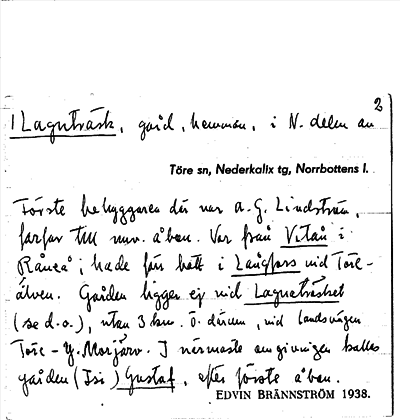 2
1 Lagnträsk, gård, hemman, i N. delen av
Töre sn, Nederkalix tg, Norrbottens l.
Förste bebyggaren där var A. G. Lindström,
farfar till nuv. åbon. Var från Vitån i
Råneå; hade förr bott i Långfors vid Töre-
älven. Gården ligger ej vid Lagnträsket
(se d.o.), utan 3 km. Ö. därom, vid landsvägen
Töre - Y. Morjärv. I närmaste omgivningen kallas
gården (Isi) Gustaf, efter förste åbon.
EDVIN BRÄNNSTRÖM 1938.